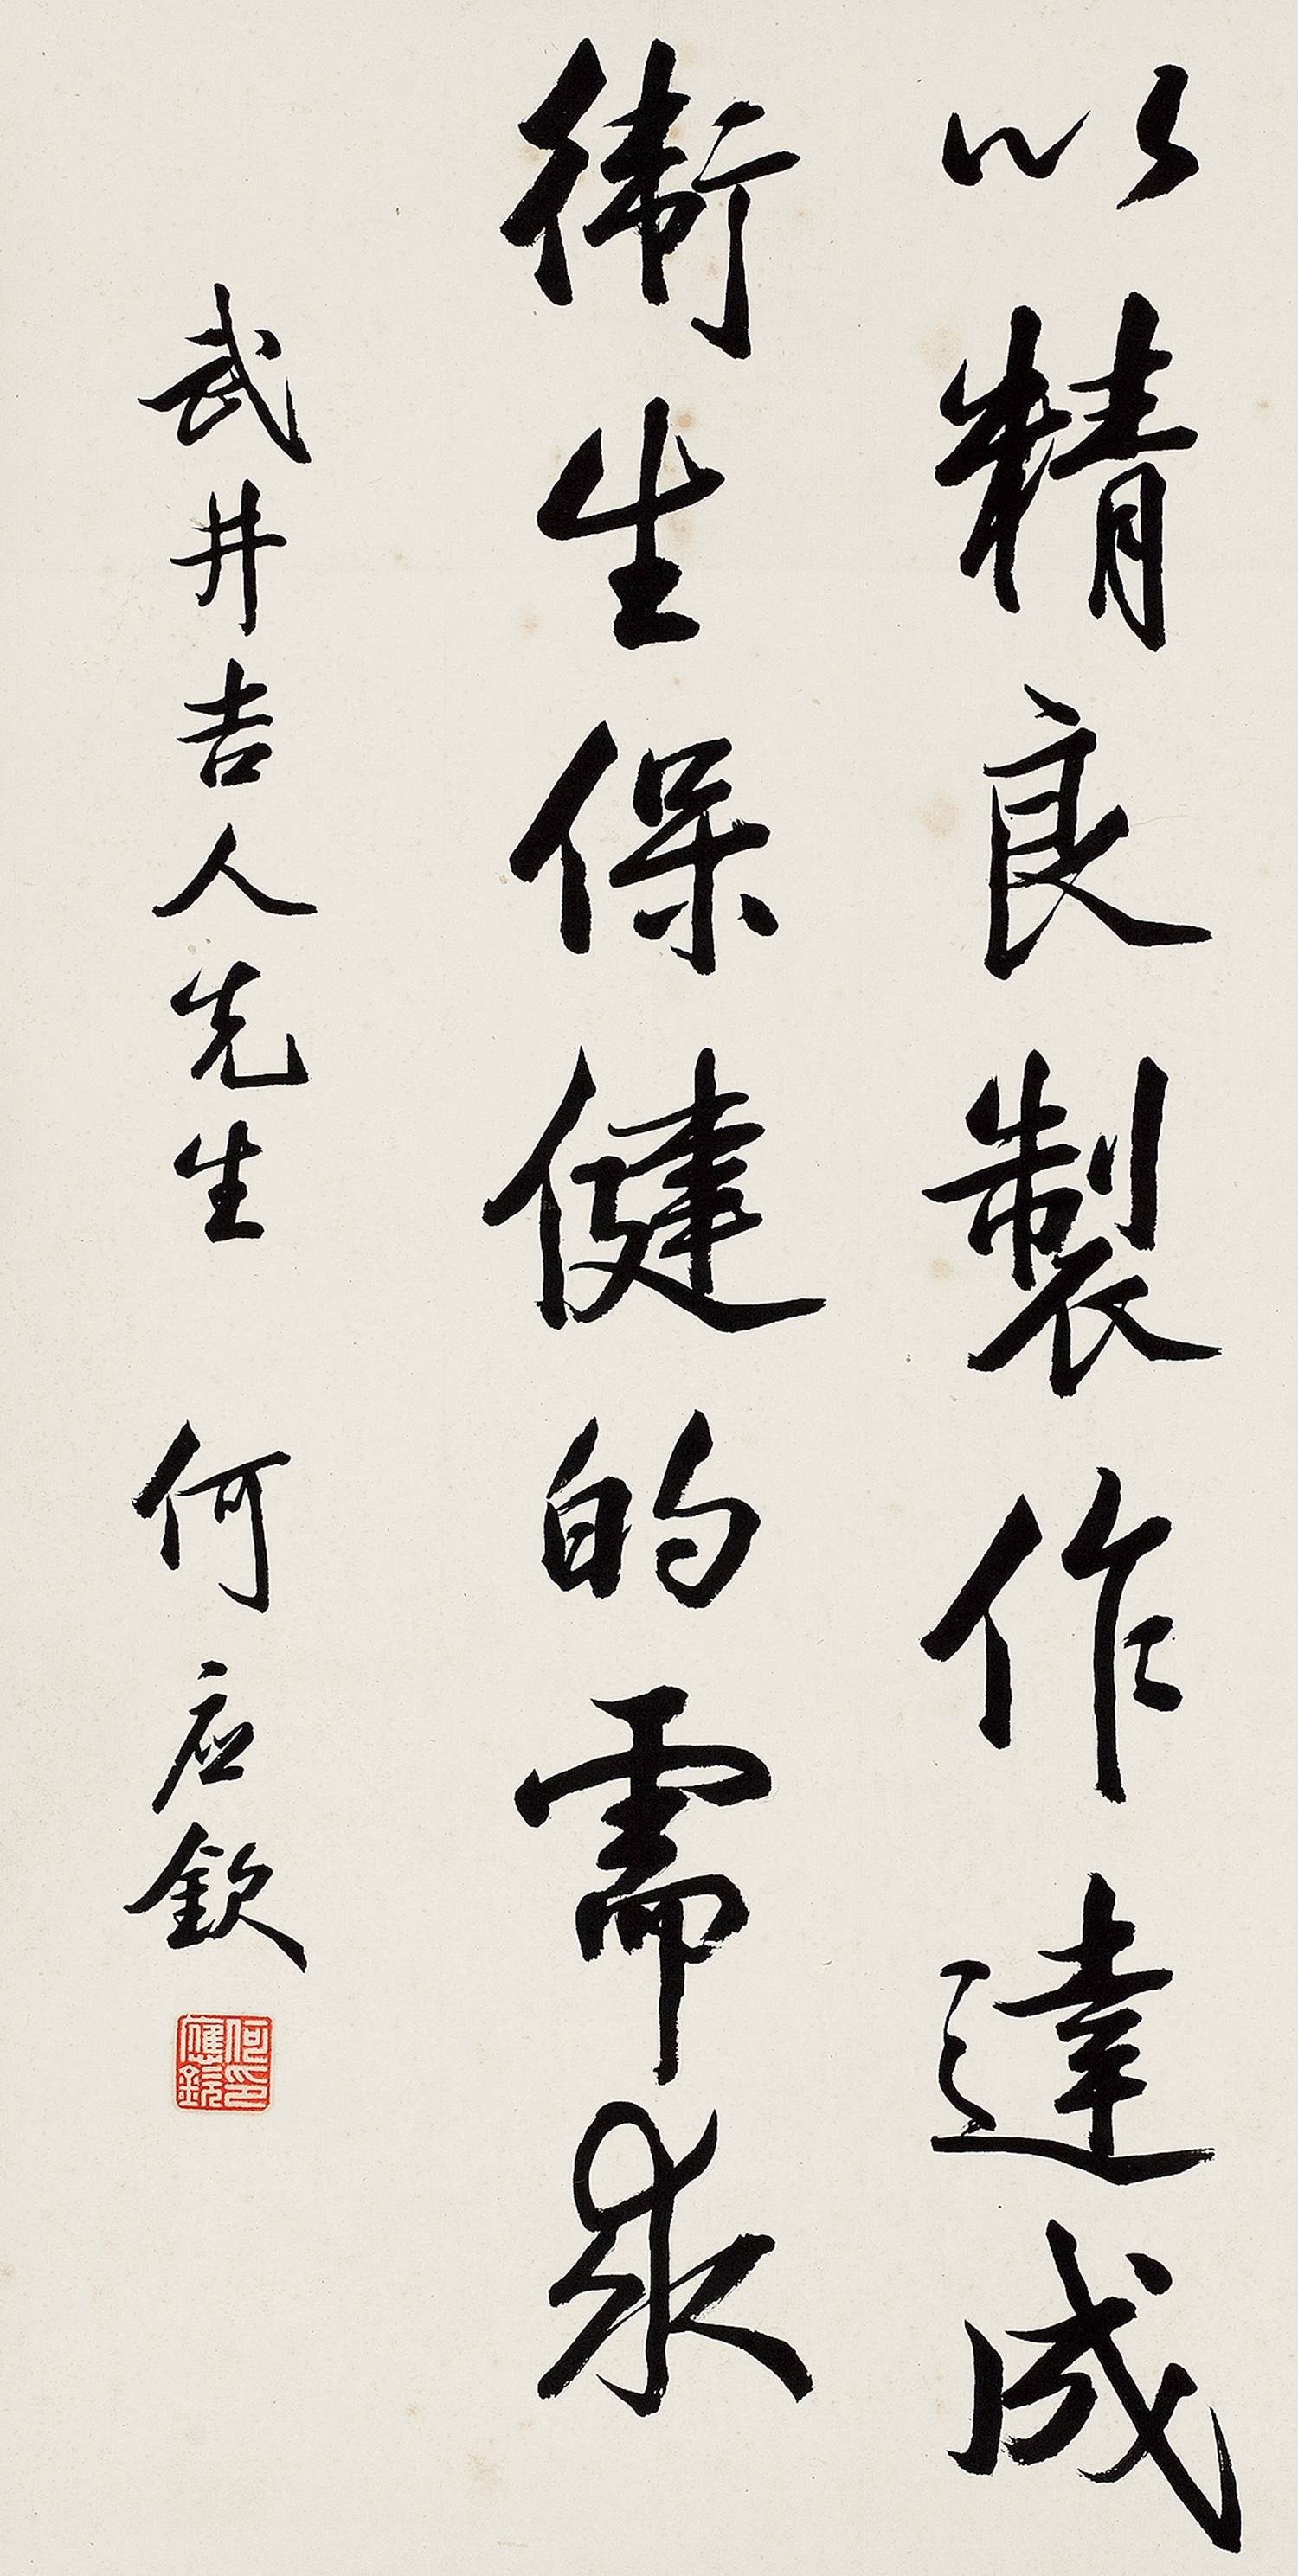 以精良製作達成
衛生保健的需求
武井吉人先生 何应欽
何應欽印